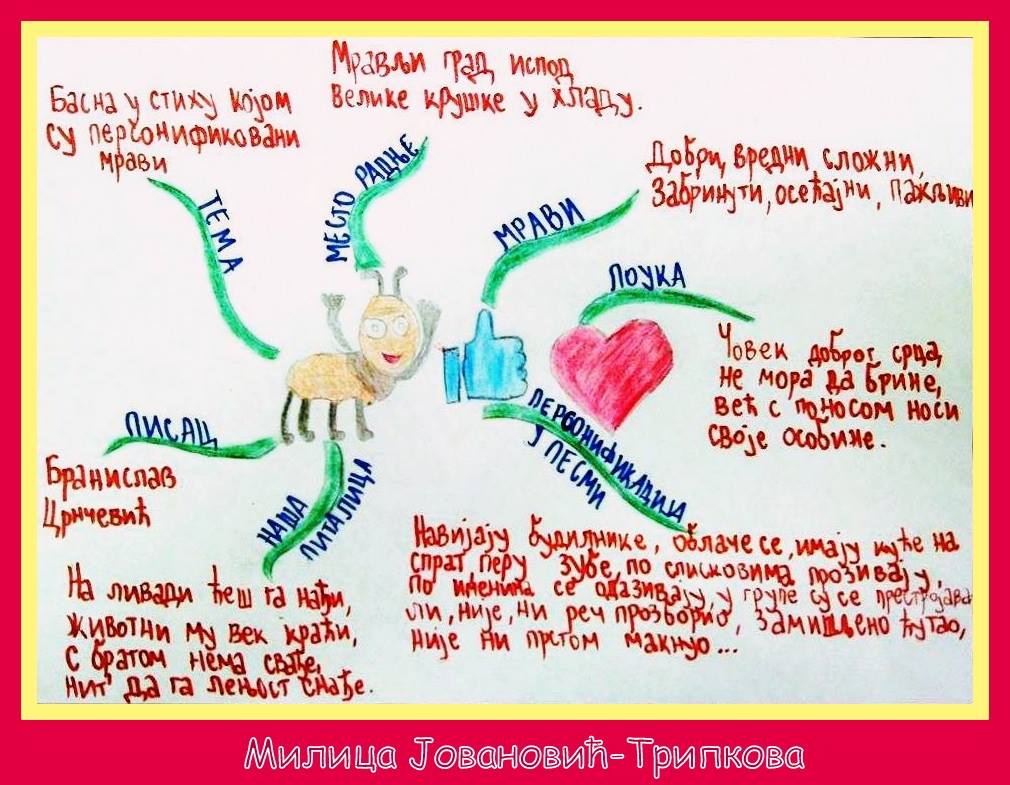 Басна у стиху којом
су персонификовани
мрави
ТЕМА
Мрављи град испод
велике крушке у хладу.
МЕСТО РАДЊЕ
Добри, вредни сложни,
Забринути, осећајни, пажљиви
МРАВИ
ПОУКА
Човек доброг срца,
не мора да брине,
већ с поносом носи
своје особине.
ПИСАЦ
Бранислав
Црнчевић
НАША
ПИТАЛИЦА
На ливади ћеш га наћи,
животни му век краћи,
с братом нема свађе,
нит' да га лењост снађе.
ПЕРСОНИФИКАЦИЈА
У ПЕСМИ
Навијају будилнике, облаче се, имају куће на
спрат, перу зубе, по списковима прозивају,
по именима се одазивају, у групе су се престројава
ли, није, ни реч прозборио, замишљено ћутао,
није ни прстом макнуо...
Милица Јовановић-Трипкова